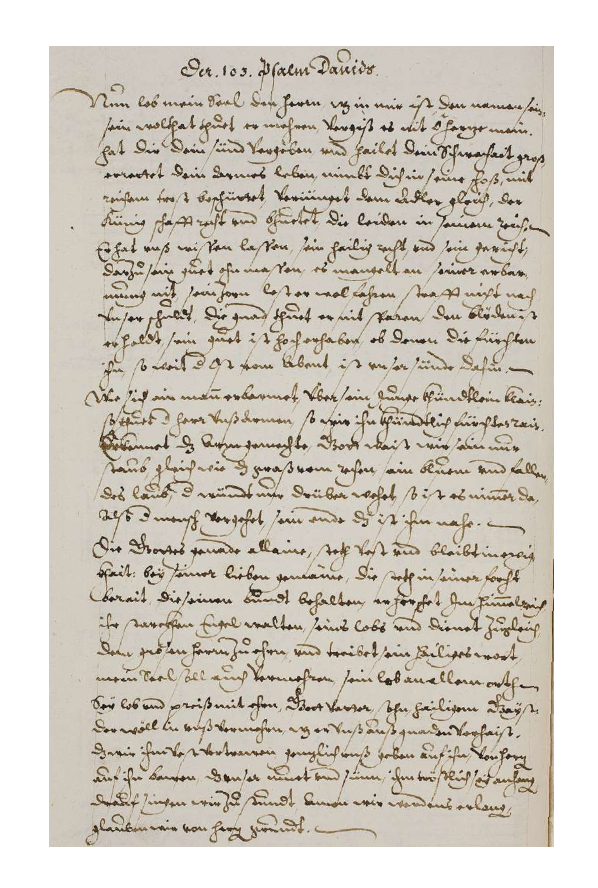 Der. 103. Psalm Dauids.
Nun lob mein Seel den herrn, wz in mir ist den namen sein,
sein wolthat thuet er mehren, vergiß es nit O herze mein.
hat dir dein sünd vergeben, vnd hailet dein Schwachait groß
errettet dein armes leben, nimbt dich in seine schoß, mit
reichem trost beschüttet, verjüngert dem Adler gleich, der
künig schafft recht vnd behüetet, die leiden in seinem reich.
Er hat vnß wissen lassen, sein heilig recht, vnd sein gericht,
darzu sein güet ohn massen, es mangelt an seiner erbar
mung nit, sein zorn lest er wol fahren, strafft nicht nach
vnser schuldt, die gnad thuet er nit sparen, den blöden ist
er holdt, sein güet ist hoch erhaben, ob denen die fürchten
ihn, so weit d Ost vom Abent, ist vnser sünde dahin.
Wie sich ein man erbarmet, vber sein junge khindlein klain:
so thuet d herr vnß armen, so wir ihn khindtlich fürchten rain.
Er kennet dz arm gemechte, Gott waist wir sein nur
staub, gleich wie dz graß vom rechen, ein bluem vnd fallen
des laub, d windt nur drüber wehet, so ist es nimer da,
Also d mensch vergehet, sein ende dz ist ihm nahe.
Die Gottes genade allaine, steth vest vnd bleibt in ewig
khait: bey seiner lieben gemaine, die steth in seiner forcht
berait, die seinen bundt behalten, er herschet Im himmelreich
ihr starckhen Engel walten, seins lobs vnd dienet zugleich,
dem grossen herrn zu ehrn, vnd treibet sein heiliges wort,
mein Seel soll auch vermehren, sein lob an allem orth.
Sey lob vnd preiß mit ehrn, Gott vatter, sohn heiligem Gayst:
der wöll in vnß vermehrn, wz er vnß auß gnaden verhaist,
dz wir ihm vest vertrawen, genzlich vnß geben auf ihn, von herz
auf ihn bawen, dz vnser muet vnd sinn, ihm tröstlich sey anhang
drauf singen wir zu stundt, Amen wir werdens erlang,
glauben wir von herz grundt.